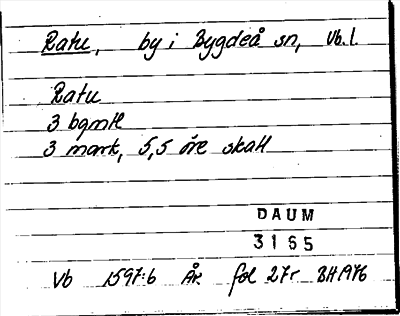 Ratu, by i Bygdeå sn, Vb.l.
Ratu
3 bgmtl
3 mark, 5,5 öre skatt
DAUM
3165
Vb 1597:6 ÅR fol 27r BH 1976